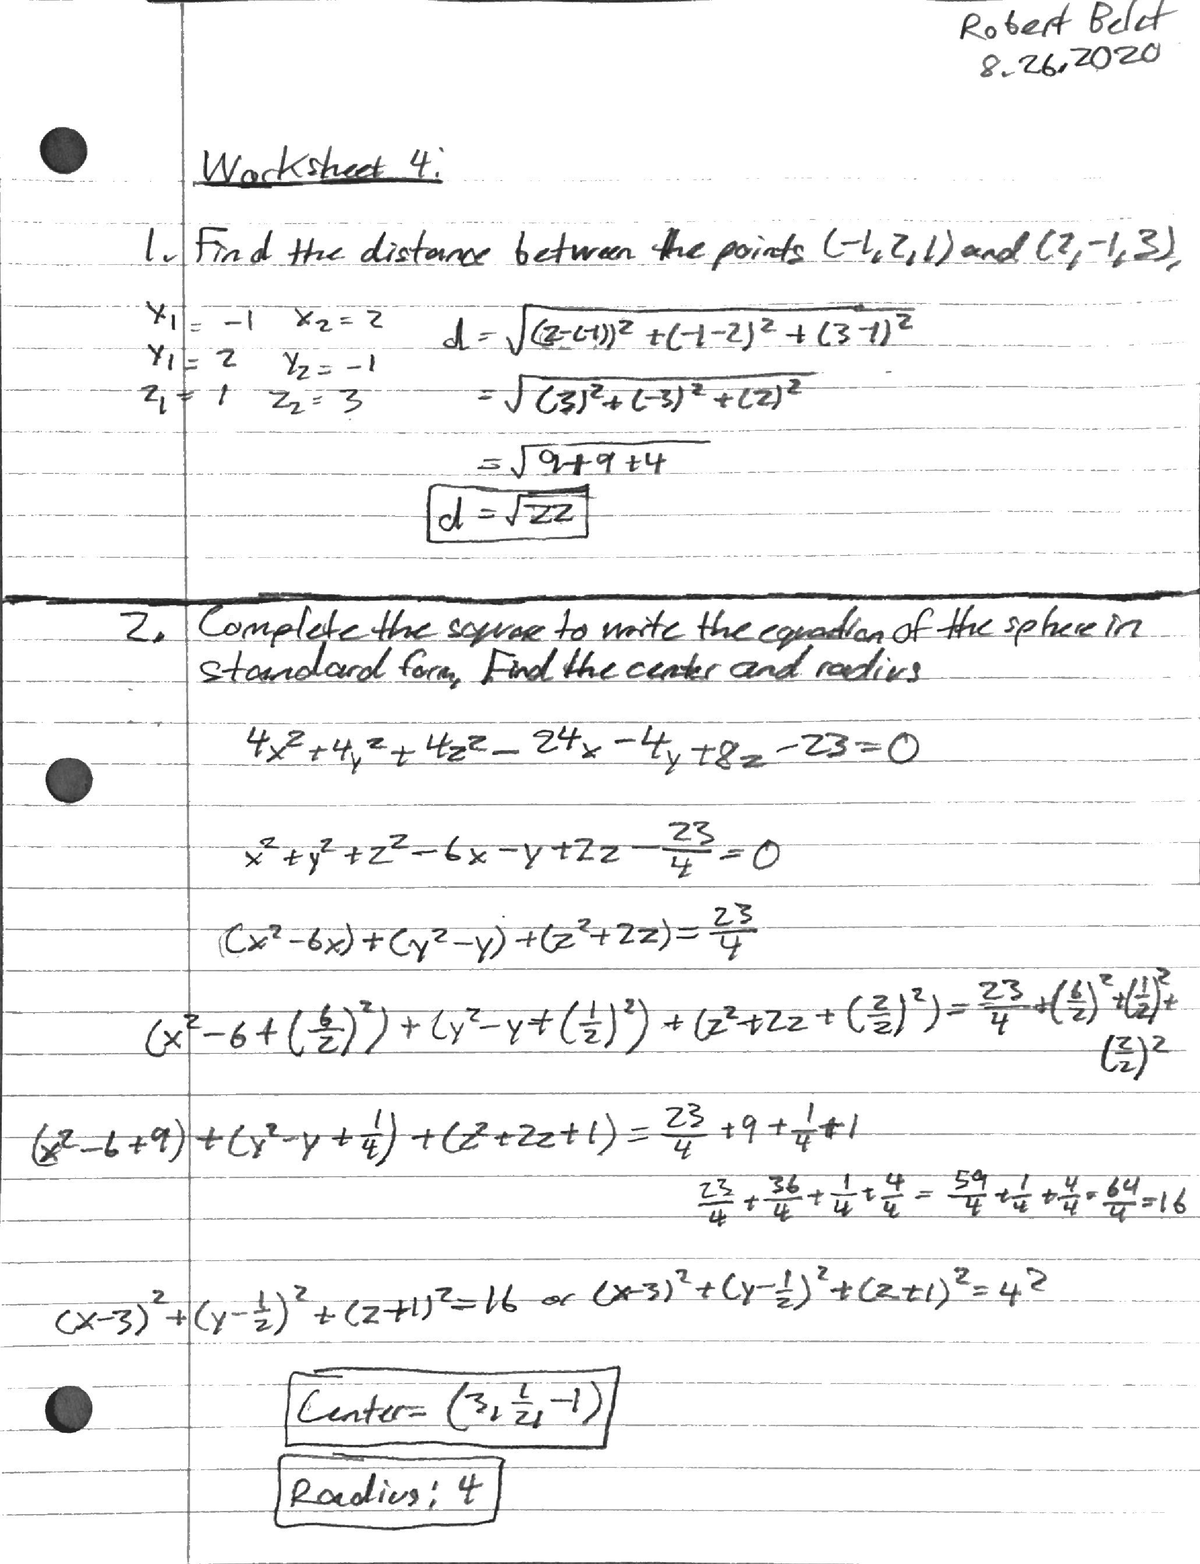 Robert Belet
8.26.2020
Worksheet 4:
1. Find the distance between the points (-1,2,1) and (2,-1,3).
x₁ = -1 x₂ = 2 d = √((2-(-1))² + (-1-2)² + (3-1)²)
y₁ = 2 y₂ = -1
z₁ = 1 z₂ = 3 = √((3)² + (-3)² + (2)²)
= √(9+9+4)
d = √22
2. Complete the square to write the equation of the sphere in
standard form. Find the center and radius
4x² + 4y² + 4z² - 24x - 4y + 8z - 23 = 0
x² + y² + z² - 6x - y + 2z - 23/4 = 0
(x² - 6x) + (y² - y) + (z² + 2z) = 23/4
(x² - 6 + (6/2)²) + (y² - y + (1/2)²) + (z² + 2z + (2/2)²) = 23/4 + (6/2)² + (1/2)² +
(2/2)²
(x² - 6 + 9) + (y² - y + 1/4) + (z² + 2z + 1) = 23/4 + 9 + 1/4 + 1
23/4 + 36/4 + 1/4 + 4/4 = 59/4 + 1/4 + 4/4 = 64/4 = 16
(x-3)² + (y-1/2)² + (z+1)² = 16 or (x-3)² + (y-1/2)² + (z+1)² = 4²
Center = (3, 1/2, -1)
Radius: 4